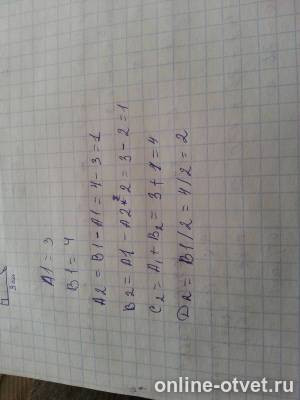 A1 = 3
B1 = 4
A2 = B1 - A1 = 4 - 3 = 1
B2 = A1 - A2 * 2 = 3 - 2 = 1
C2 = A1 + B2 = 3 + 1 = 4
D2 = B1/2 = 4/2 = 2
online-otvet.ru